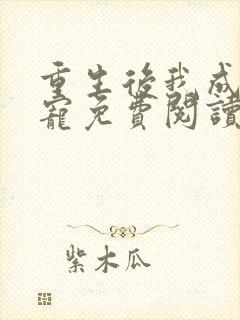 重生後我成
寵免費閱讀
紫木瓜